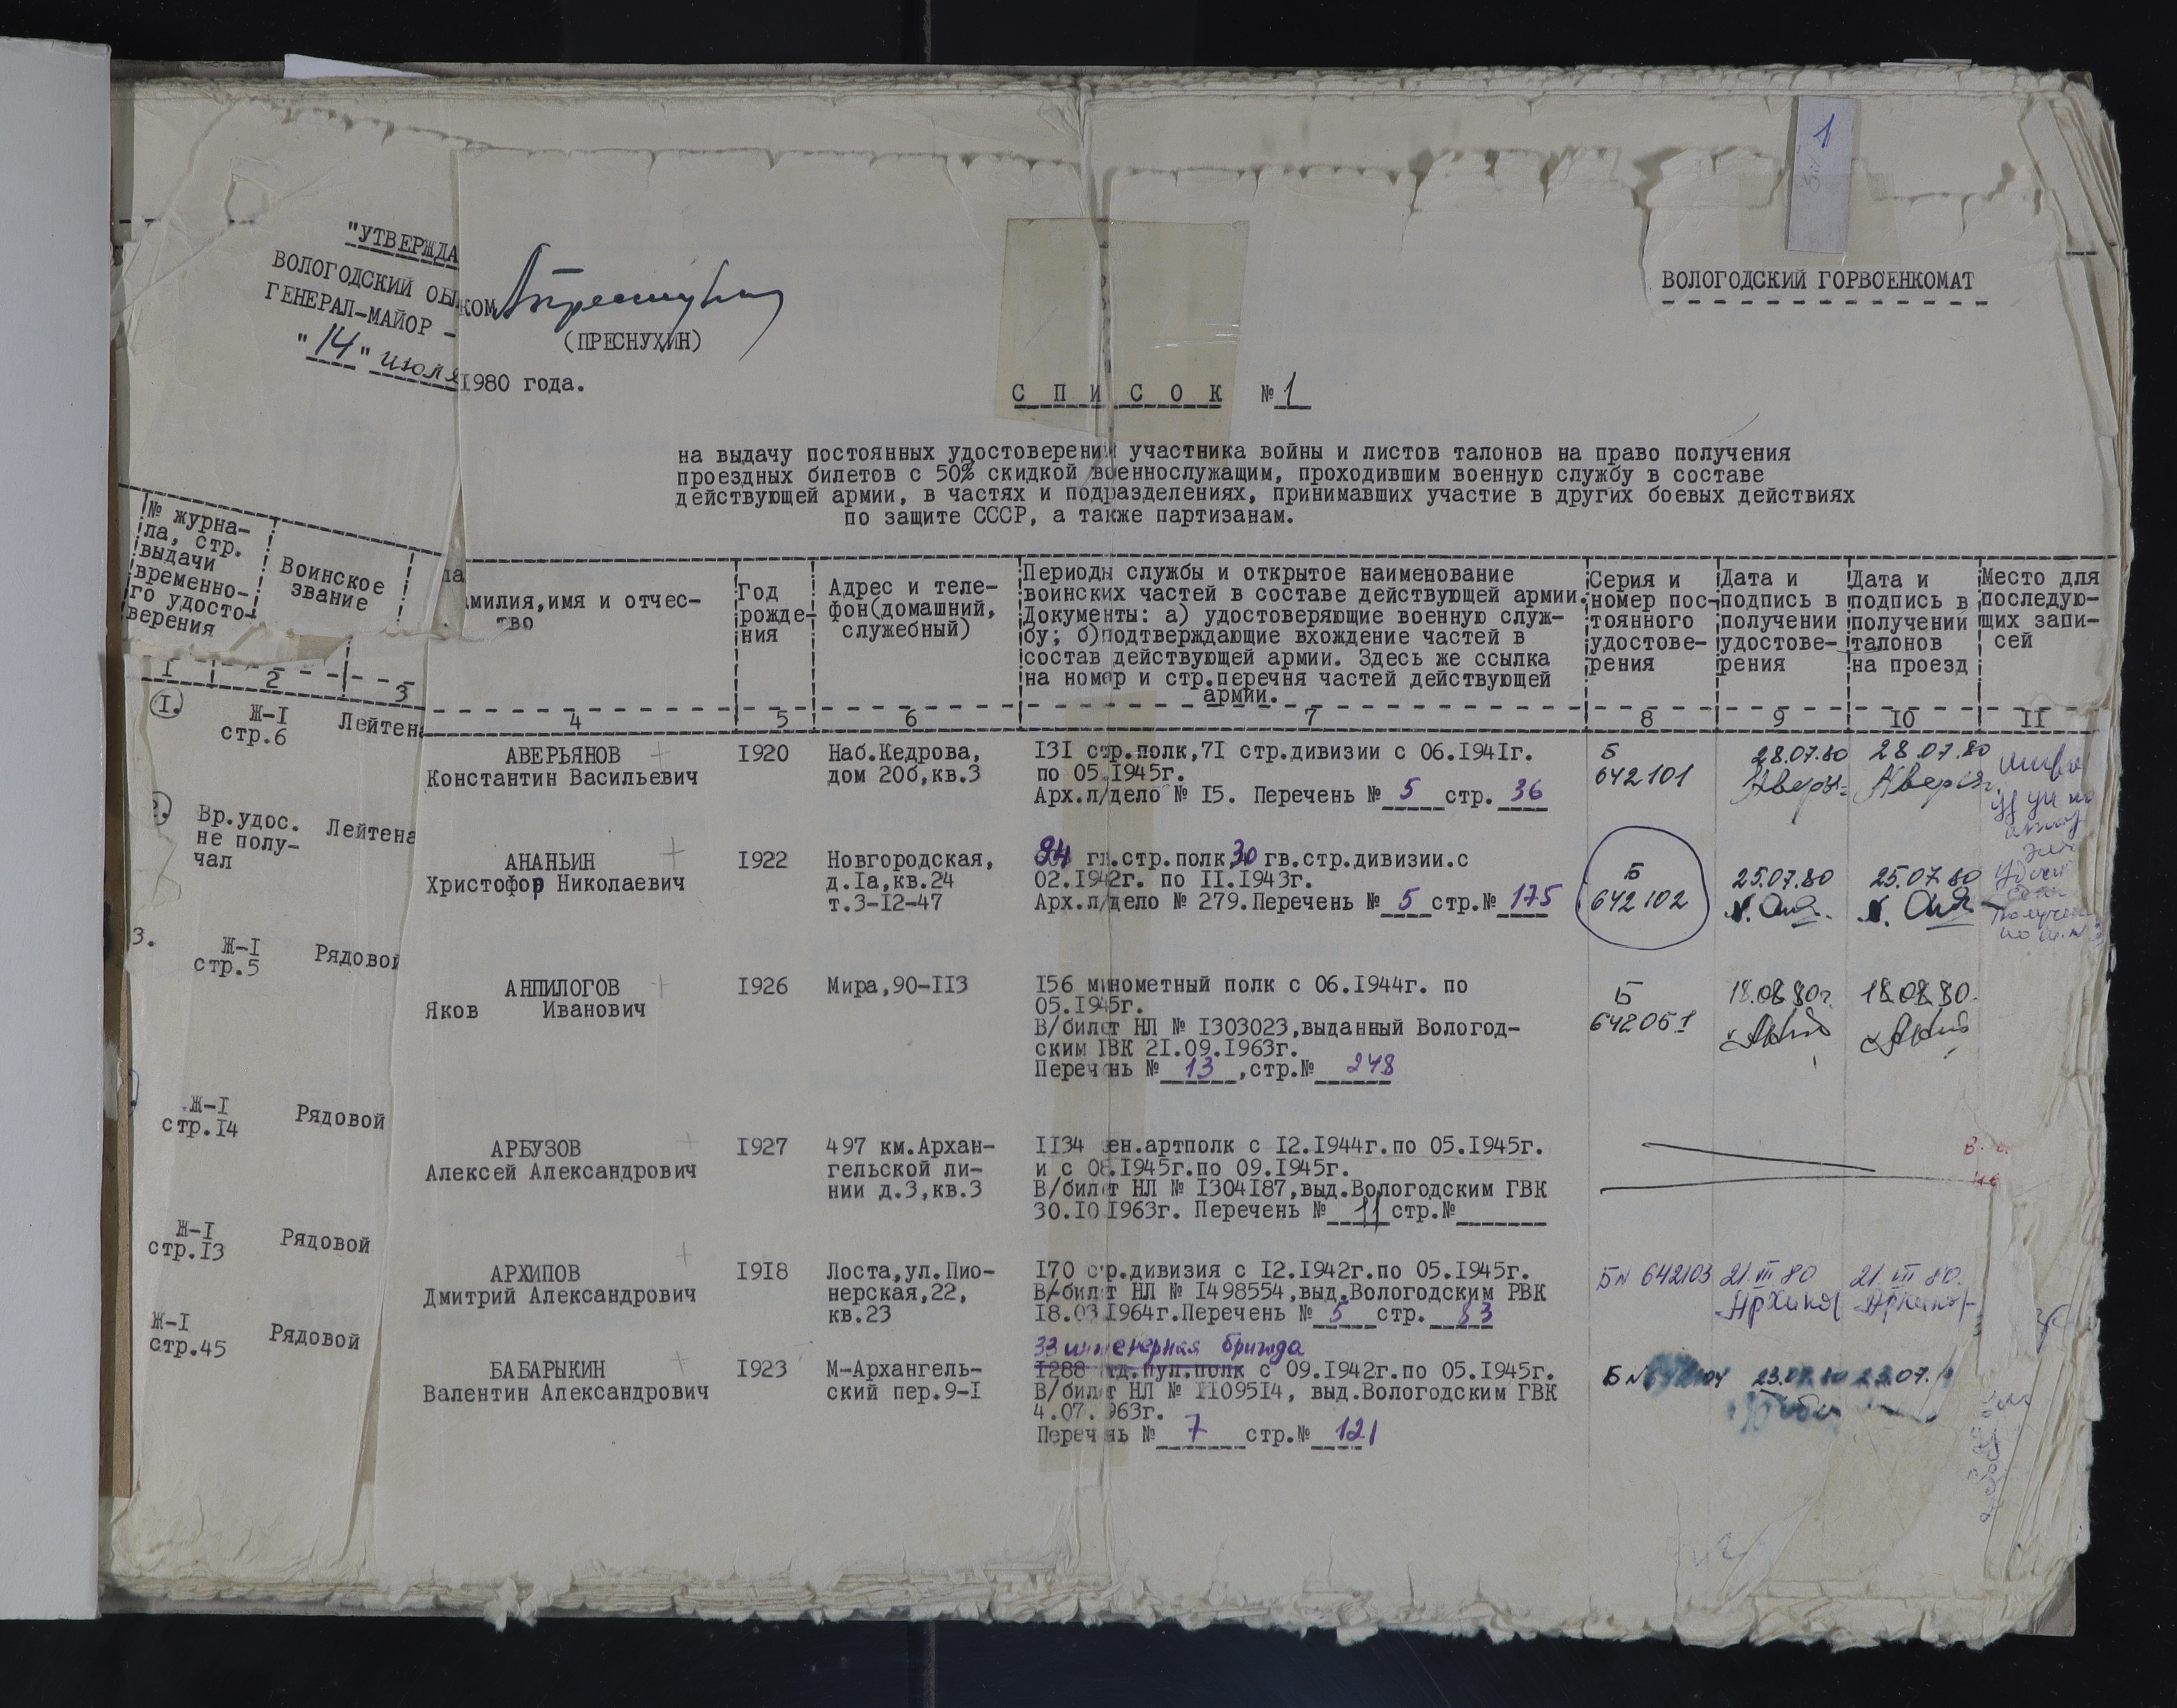 1
"УТВЕРЖДА
ВОЛОГОДСКИЙ ОБЛ
КОМ
ГЕНЕРАЛ-МАЙОР -
(ПРЕСНУХИН)
"14" июля
1980 года.
ВОЛОГОДСКИЙ ГОРВОЕНКОМАТ
СПИСОК № 1
на выдачу постоянных удостоверений участника войны и листов талонов на право получения
проездных билетов с 50% скидкой военнослужащим, проходившим военную службу в составе
действующей армии, в частях и подразделениях, принимавших участие в других боевых действиях
по защите СССР, а также партизанам.
№ журна-
ла, стр.
выдачи
временно-
го удосто-
верения
Воинское
звание
милия, имя и отчес-
тво
Год
рожде-
ния
Адрес и теле-
фон(домашний,
служебный)
Периоды службы и открытое наименование
воинских частей в составе действующей армии.
Документы: а) удостоверяющие военную служ-
бу; б)подтверждающие вхождение частей в
состав действующей армии. Здесь же ссылка
на номер и стр.перечня частей действующей
армии.
Серия и
номер пос-
тоянного
удостове-
рения
Дата и
подпись в
получении
удостове-
рения
Дата и
подпись в
получении
талонов
на проезд
Место для
последую-
щих запи-
сей
1 2 3 4 5 6 7 8 9 10 11
1.
Ж-1
стр.6
Лейтена
АВЕРЬЯНОВ
Константин Васильевич
1920
Наб.Кедрова,
дом 20б,кв.3
131 стр.полк,71 стр.дивизии с 06.1941г.
по 05.1945г.
Арх.л/дело № 15. Перечень № 5 стр. 36
Б
642101
28.07.80
28.07.80
2.
Вр.удос.
не полу-
чал
Лейтена
АНАНЬИН
Христофор Николаевич
1922
Новгородская,
д.1а,кв.24
т.3-12-47
гв.стр.полк, 30 гв.стр.дивизии.с
02.1942г. по 11.1943г.
Арх.л/дело № 279.Перечень № 5 стр.№ 175
Б
642102
25.07.80
25.07.80
3.
Ж-1
стр.5
Рядовой
АНПИЛОГОВ
Яков Иванович
1926
Мира,90-113
156 минометный полк с 06.1944г. по
05.1945г.
В/билет НЛ № 1303023,выданный Вологод-
ским ГВК 21.09.1963г.
Перечень № 13 ,стр.№ 248
Б
642051
18.08.80г.
18.08.80.
Ж-1
стр.14
Рядовой
АРБУЗОВ
Алексей Александрович
1927
497 км.Архан-
гельской ли-
нии д.3,кв.3
1134 зен.артполк с 12.1944г.по 05.1945г.
и с 08.1945г.по 09.1945г.
В/билет НЛ № 1304187,выд.Вологодским ГВК
30.10.1963г. Перечень № 11 стр.№
Ж-1
стр.13
Рядовой
АРХИПОВ
Дмитрий Александрович
1918
Лоста,ул.Пио-
нерская,22,
кв.23
170 стр.дивизия с 12.1942г.по 05.1945г.
В/билет НЛ № 1498554,выд.Вологодским РВК
18.03.1964г.Перечень № 5 стр. 83
Б№ 642103
21.VII 80
21.VII 80.
Ж-1
стр.45
Рядовой
БАБАРЫКИН
Валентин Александрович
1923
М-Архангель-
ский пер.9-1
33 инженерная бригада
1288 пул.полк с 09.1942г.по 05.1945г.
В/билет НЛ № 1109514, выд.Вологодским ГВК
4.07.1963г.
Перечень № 7 стр.№ 121
23.07.80
23.07.